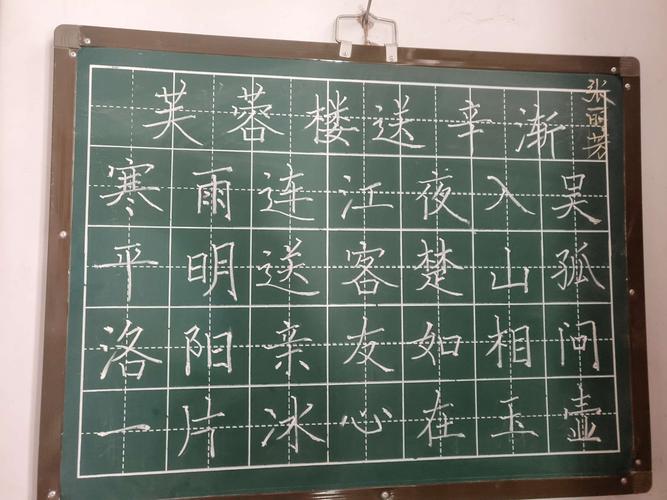 芙蓉楼送辛渐
张明芳
寒雨连江夜入吴
平明送客楚山孤
洛阳亲友如相问
一片冰心在玉壶